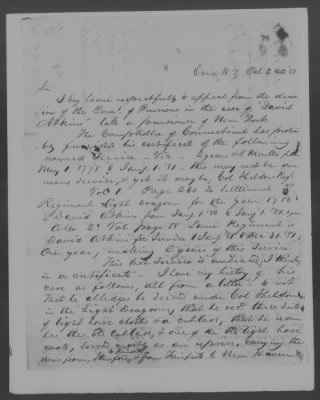 Ovid, N.Y. Oct 24th
Sir
I beg leave respectfully to appeal from the decis
ion of the Com. of Pensions in the case of "David
Atkins" late a pensioner of New York
The Comptroller of Connecticut has
his certificate of the following
named service - Viz - 2 years & months, from
May 1, 1778 to Jany 1, 81 - this may not be one
mans service, & yet it may be, Col Sheldons Regt
Vol 1. Page 260 in Settlement 2nd
Regiment Light Dragoons for the year 1780
is David Atkins from Jany 1 80 to Jany 1, 81, year
Also 2d Vol page 58 Same Regiment is
David Atkins for service 1 Jany 81 to Dec 31, 81,
One year, making 2 years in this service
This last service is indicated, I think,
in a certificate - I have my history of his
case as follows, all from a letter - to wit
That he alledges he served under Col Sheldon
in the Light Dragoons, that he recd three suits
of light horse cloths & a cutlass, that he now
has the old cutlass, & one of the old light horse
coats, served mostly as an express, carrying the
news from Stamford, & from Fairfield to New Haven